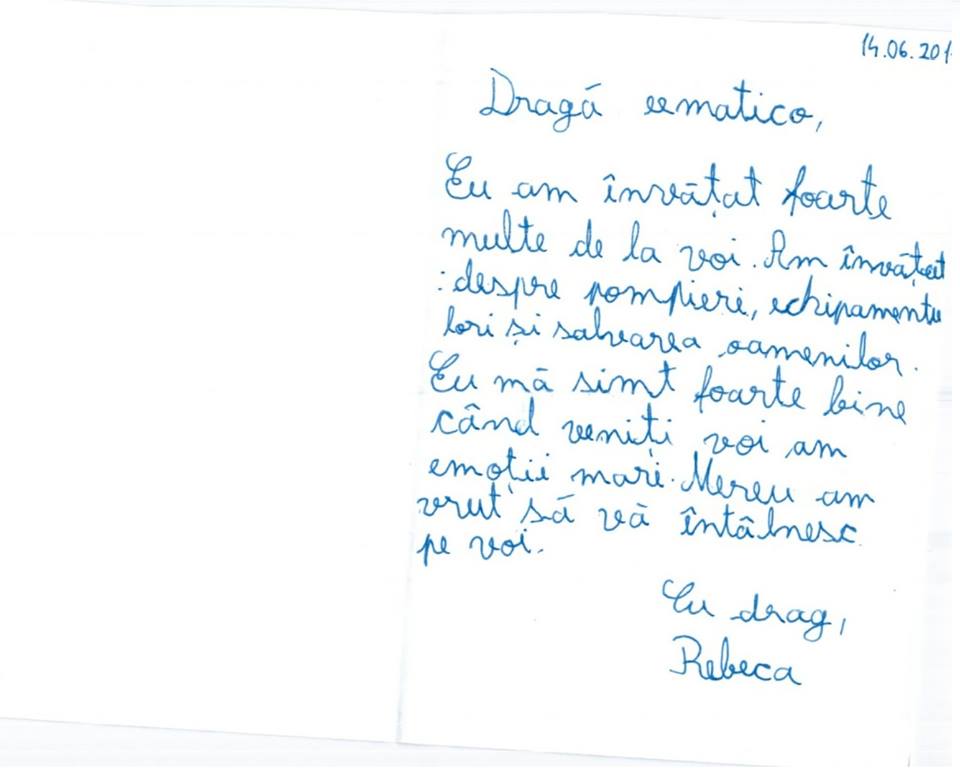 14.06.201
Dragă eematico,
Eu am învățat foarte
multe de la voi. Am învățat
: despre pompieri, echipamentu
lori și salvarea oamenilor.
Eu mă simt foarte bine
când veniți voi am
emoții mari. Mereu am
vrut să vă întâlnesc
pe voi.
Cu drag,
Rebeca